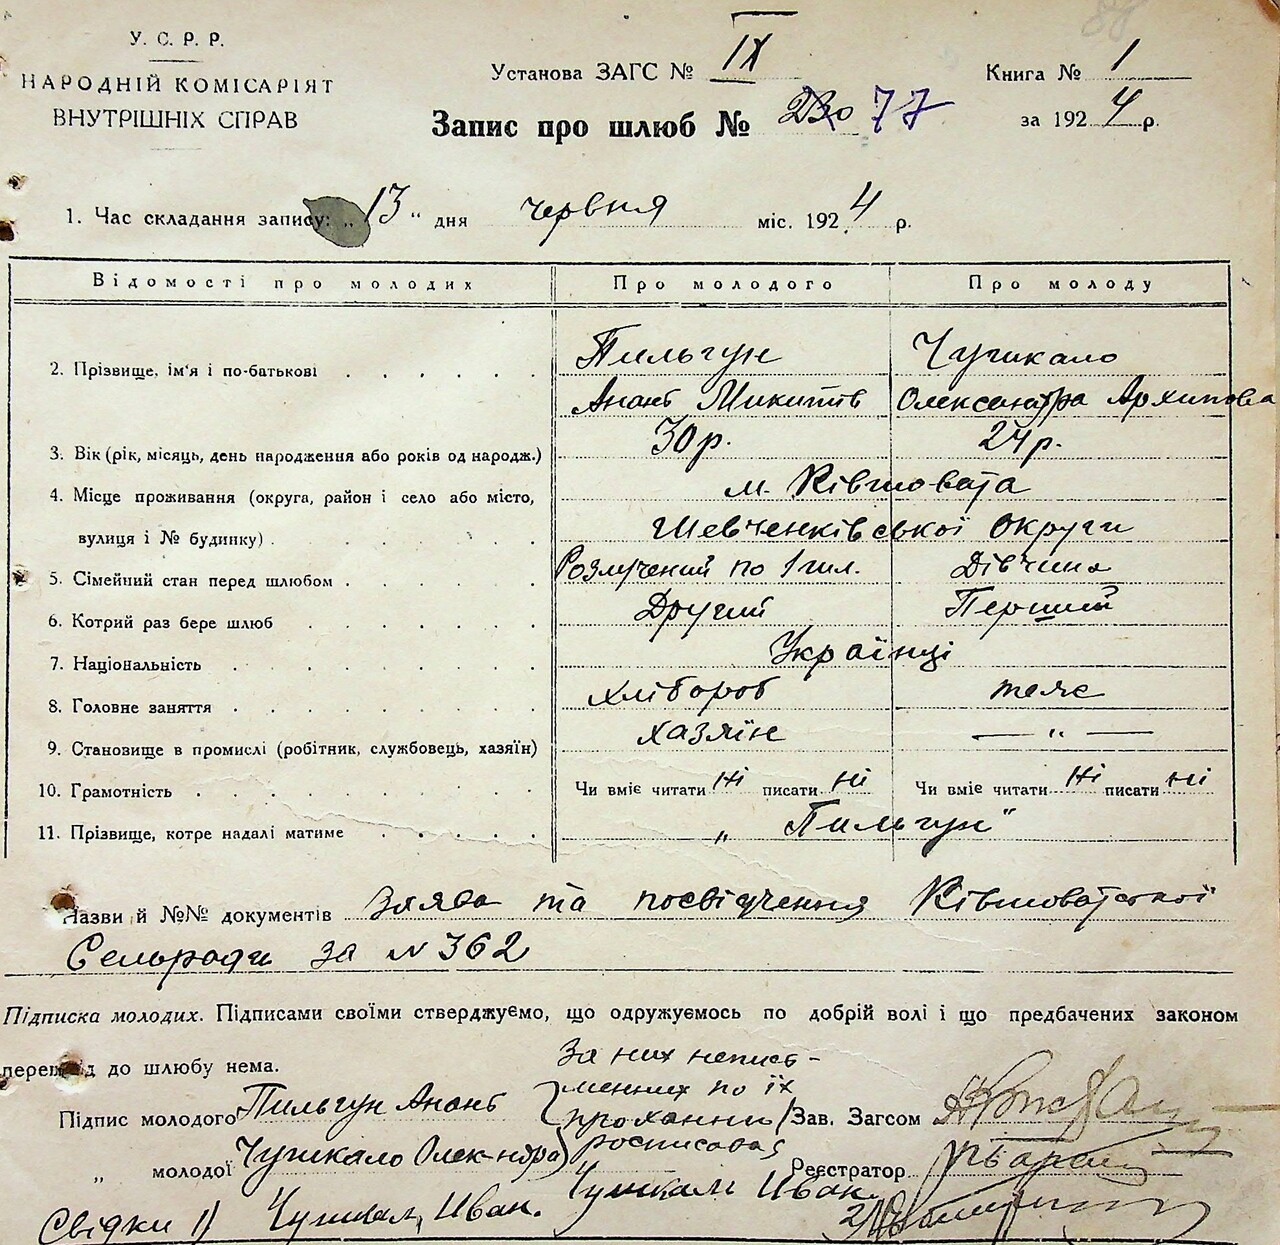 У. С. Р. Р.
НАРОДНІЙ КОМІСАРІЯТ
ВНУТРІШНІХ СПРАВ
Установа ЗАГС № IX
Книга № 1
Запис про шлюб № 230 77
за 1924 р.
1. Час складання запису: „13“ дня червня міс. 1924 р.
Відомості про молодих Про молодого Про молоду
Пильгун Чушкало
2. Прізвище, ім'я і по-батькові
Анань Микитів Олександра Архипова
30 р. 24 р.
3. Вік (рік, місяць, день народження або років од народж.)
4. Місце проживання (округа, район і село або місто, м. Ківшовата
вулиця і № будинку). Шевченківської Округи
5. Сімейний стан перед шлюбом Розлучений по 1 шл. Дівчина
6. Котрий раз бере шлюб Другий Перший
7. Національність Українці
8. Головне заняття хлібороб теже
9. Становище в промислі (робітник, службовець, хазяїн) хазяїн — „ —
10. Грамотність Чи вміє читати ні писати ні Чи вміє читати ні писати ні
11. Прізвище, котре надалі матиме „ Пильгун“
Назви й №№ документів заява та посвідчення Ківшоватської
Сельради за N 362
Підписка молодих. Підписами своїми стверджуємо, що одружуємось по добрій волі і що предбачених законом
перешкод до шлюбу нема. За них непист-
менних по їх
Підпис молодого Пильгун Анань проханню Зав. Загсом
росписовая
„ молодої Чушкало Олек-ндра Реєстратор
Чушкало Иван
Свідки 1) Чушкал, Иван. 2)